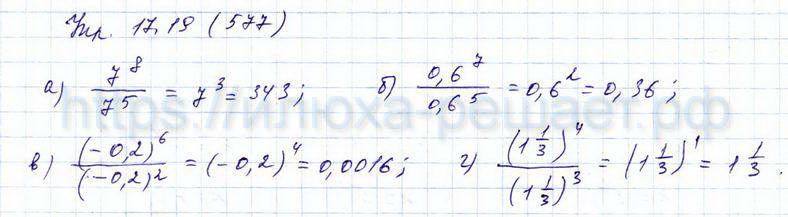 Упр. 17.19 (577)
а) 7^8 / 7^5 = 7^3 = 343; б) 0,6^7 / 0,6^5 = 0,6^2 = 0,36;
https://илюха-решает.рф
в) (-0,2)^6 / (-0,2)^2 = (-0,2)^4 = 0,0016; г) (1 1/3)^4 / (1 1/3)^3 = (1 1/3)^1 = 1 1/3.